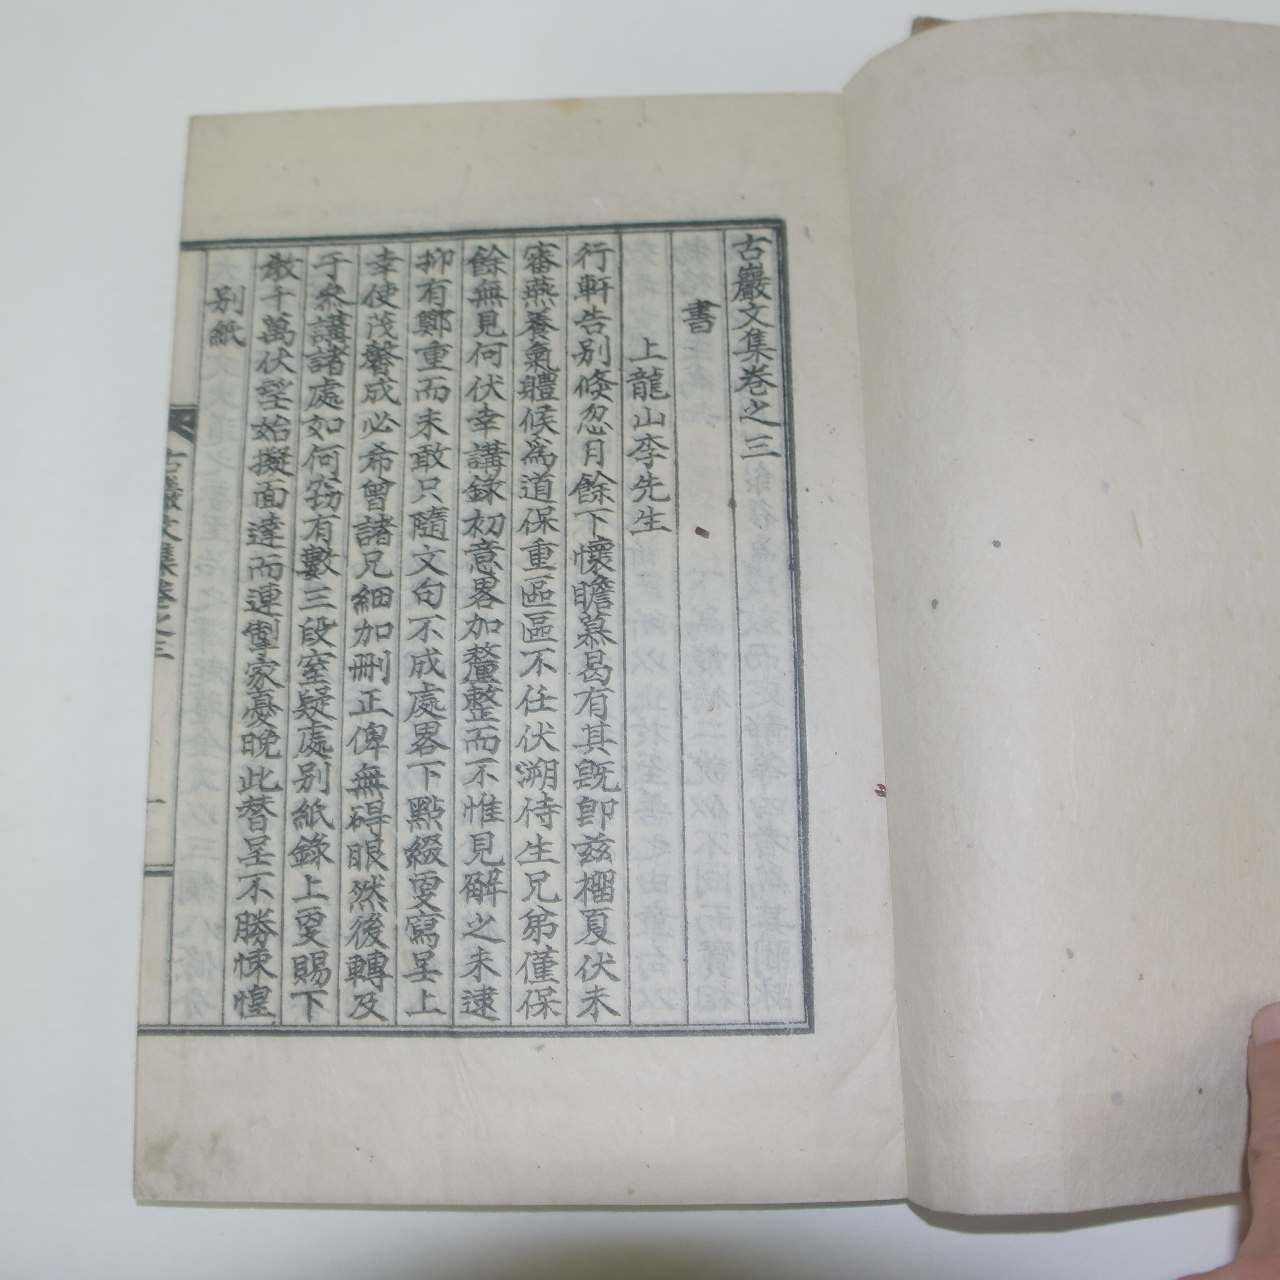 古巖文集卷之三
書
上龍山李先生
行軒告別倐忽月餘下懷瞻慕曷有其旣卽玆榴夏伏未
審燕養氣體候爲道保重區區不任伏溯侍生兄弟僅保
餘無見何伏幸講錄初意畧加釐整而不惟見解之未逮
抑有鄭重而未敢只隨文句不成處畧下點綴更寫呈上
幸使茂馨成必希曾諸兄細加刪正俾無碍眼然後轉及
于衆講諸處如何窃有數三段窒疑處別紙錄上更賜下
敎千萬伏望始擬面達而連掣家憂晩此替呈不勝悚惶
別紙
古巖文集卷之三
一